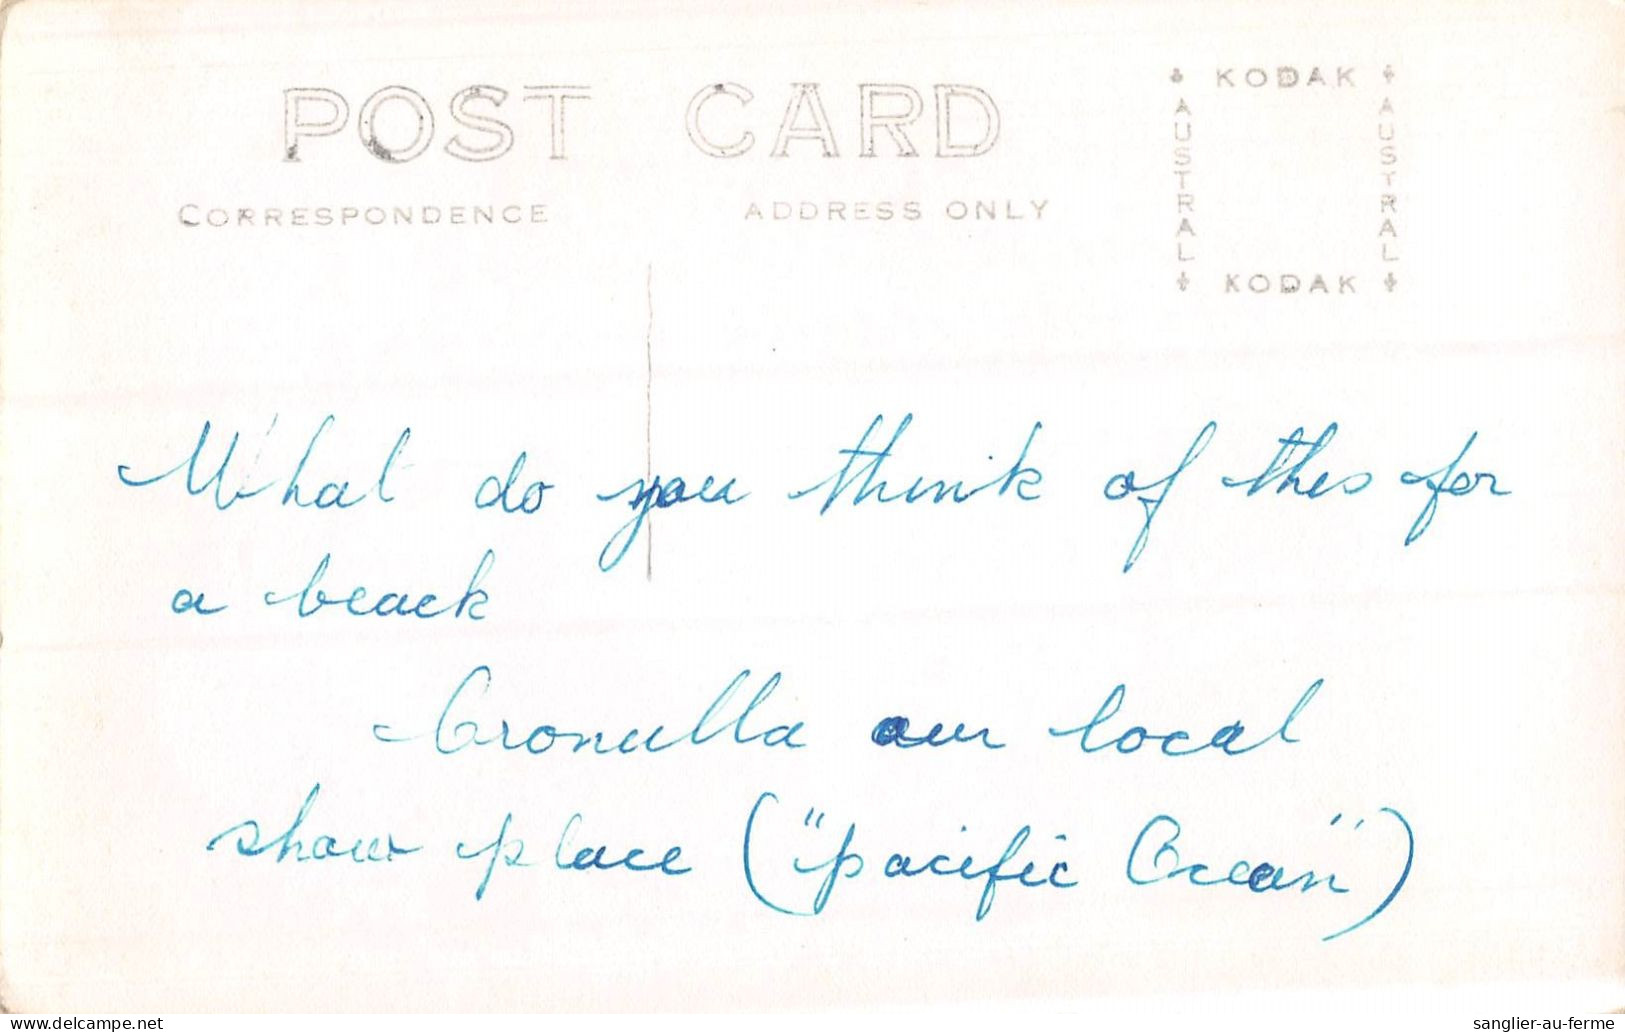 POST CARD
CORRESPONDENCE
ADDRESS ONLY
KODAK
AUSTRAL
AUSTRAL
KODAK
What do you think of this for
a beach
Cronulla our local
show place ("pacific Ocean")
sanglier-au-ferme